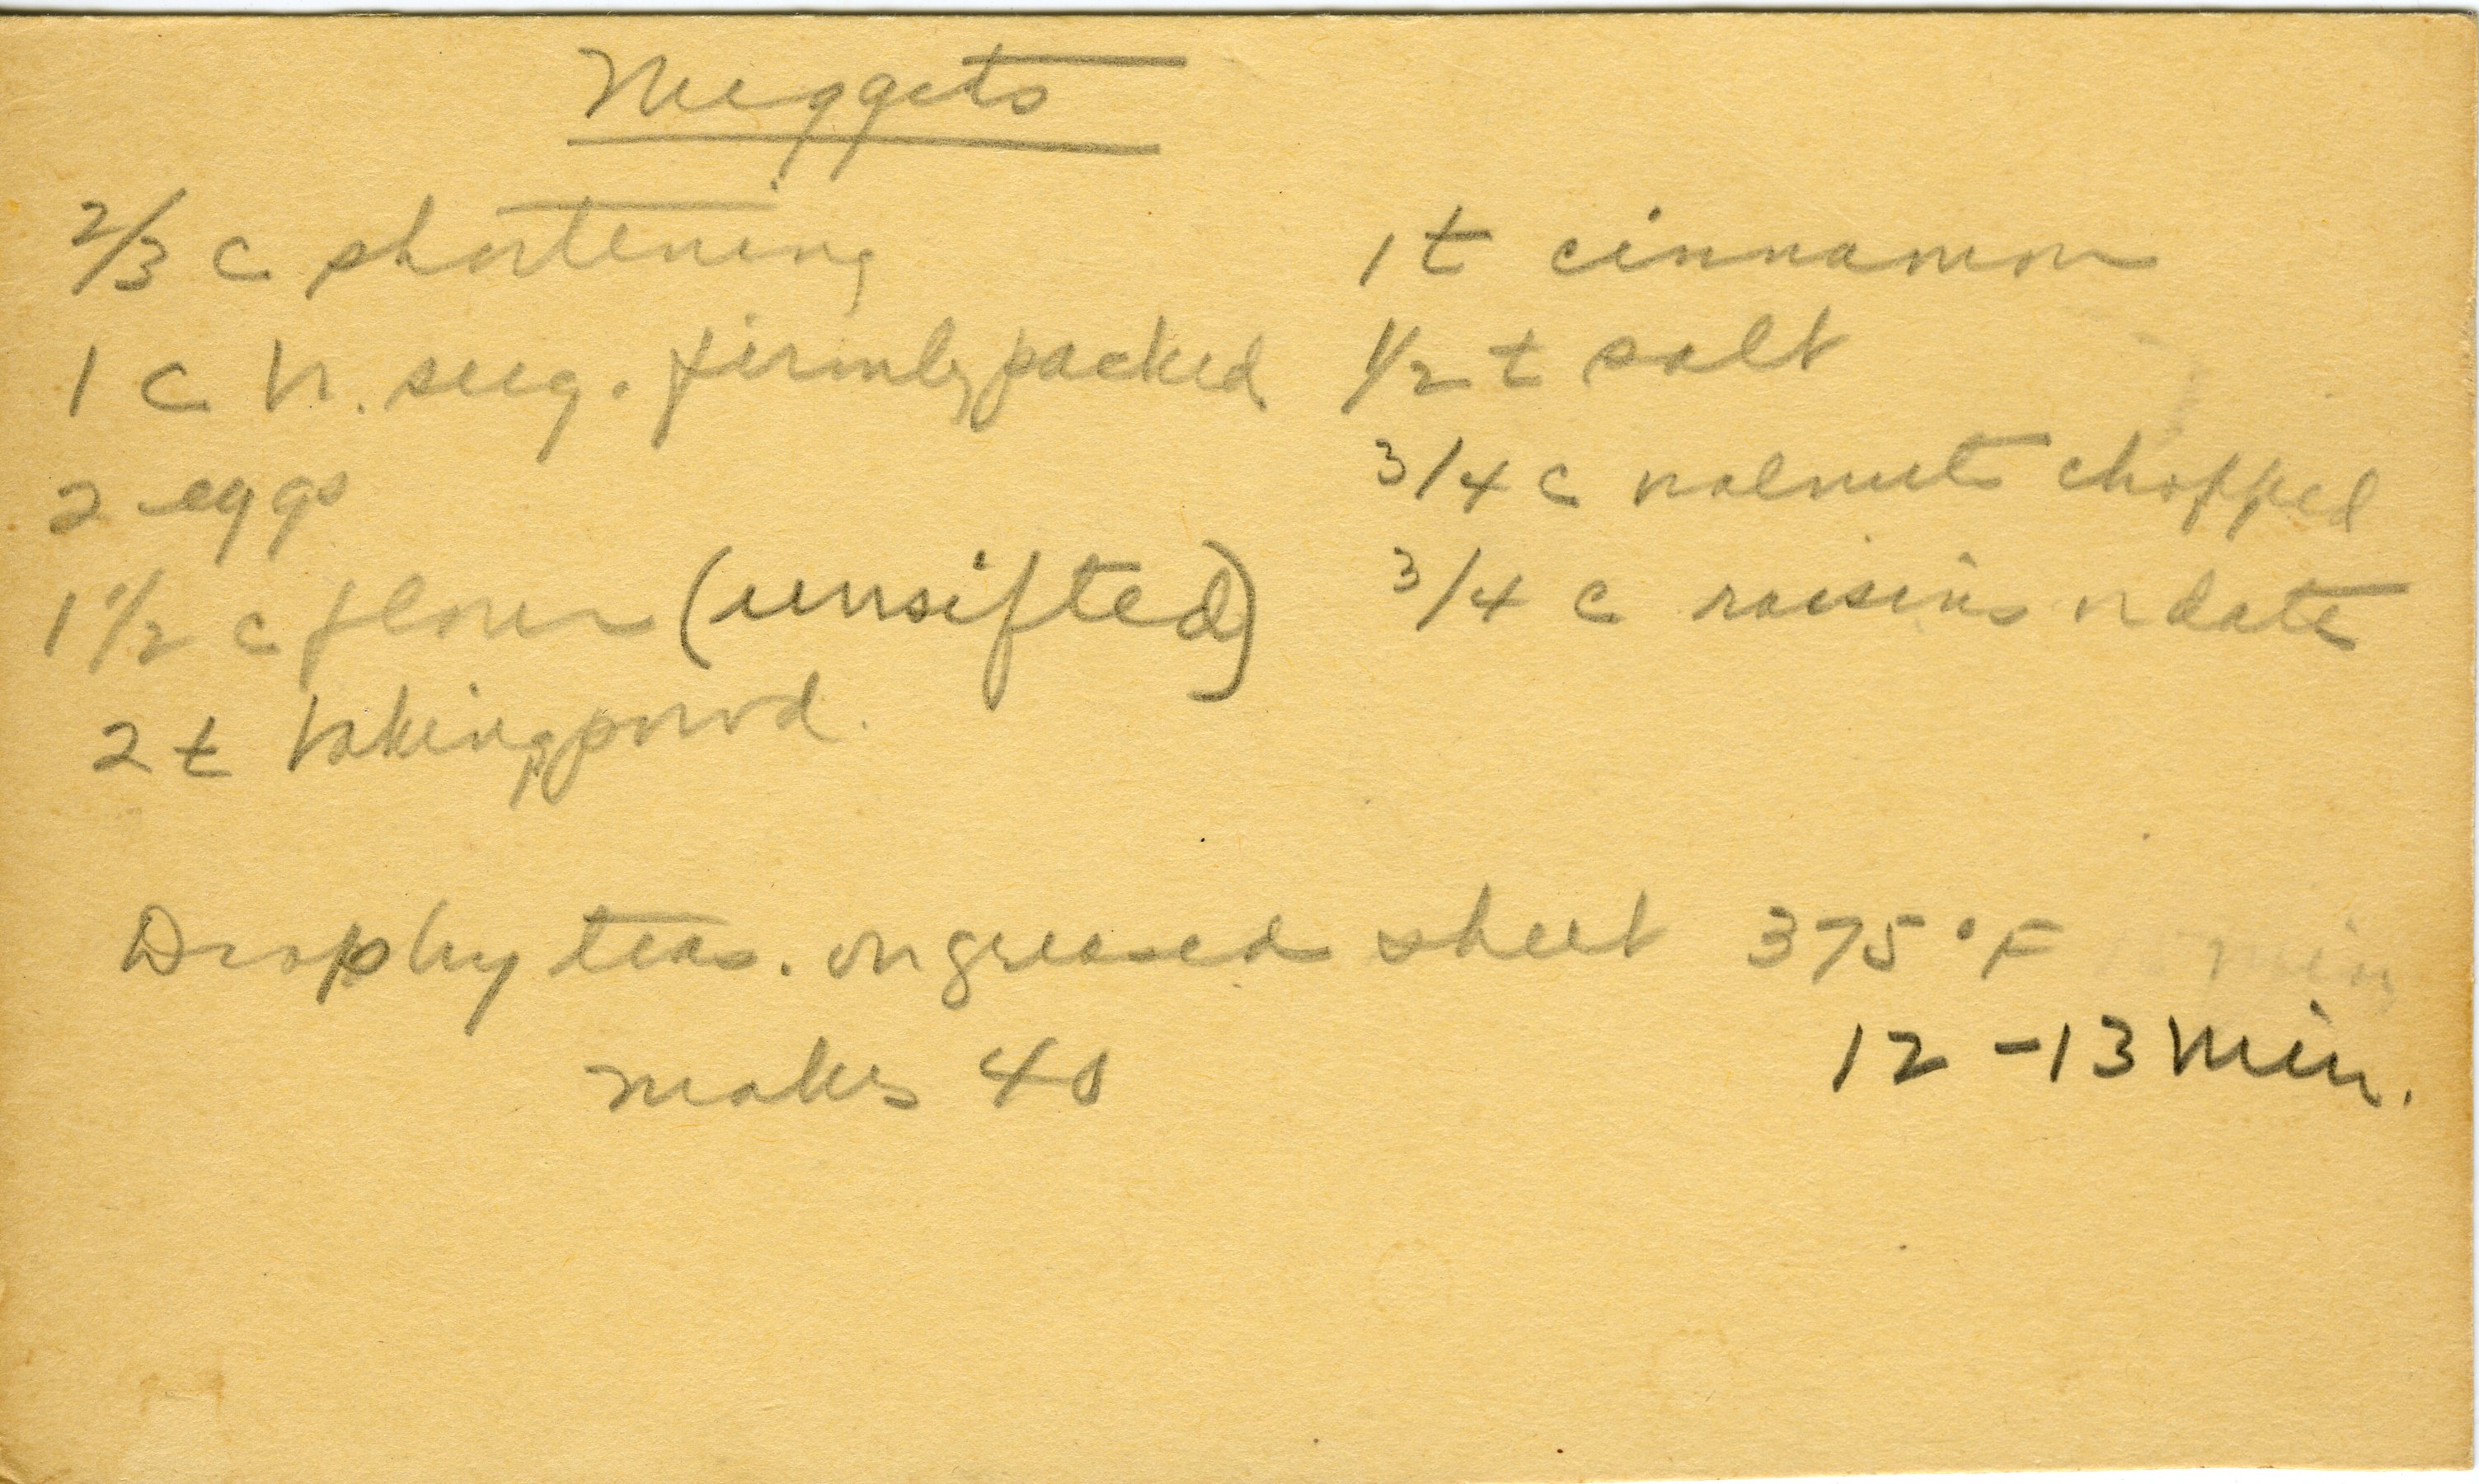 Nuggets
2/3 c shortening
1 c br. sug. firmly packed
2 eggs
1 1/2 c flour (unsifted)
2 t baking powd.
1 t cinnamon
1/2 t salt
3/4 c walnuts chopped
3/4 c raisins or date
Drop by teas. on greased sheet 375°F min
12-13 min.
makes 40